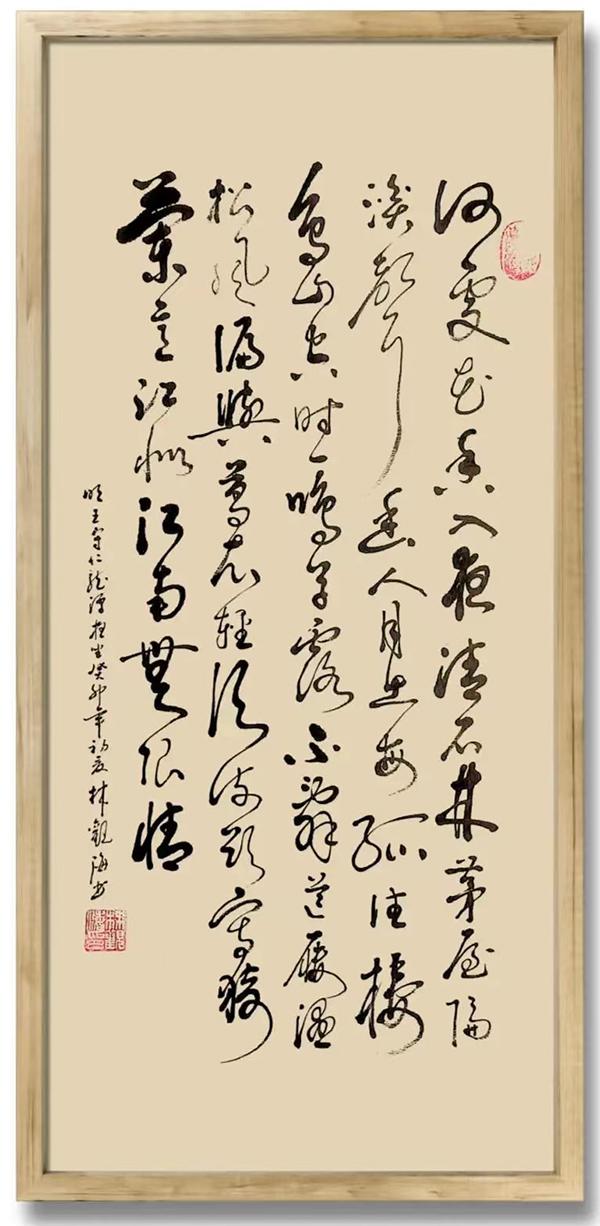 何處花香入夜清石林茅屋隔
溪聲幽人月出每孤往棲
鳥山空時一鳴草露不辭芒屨濕
松風偏與葛衣輕臨流欲寫猗
蘭意江北江南無限情
明王守仁龍潭夜坐癸卯年初夏林觀海書